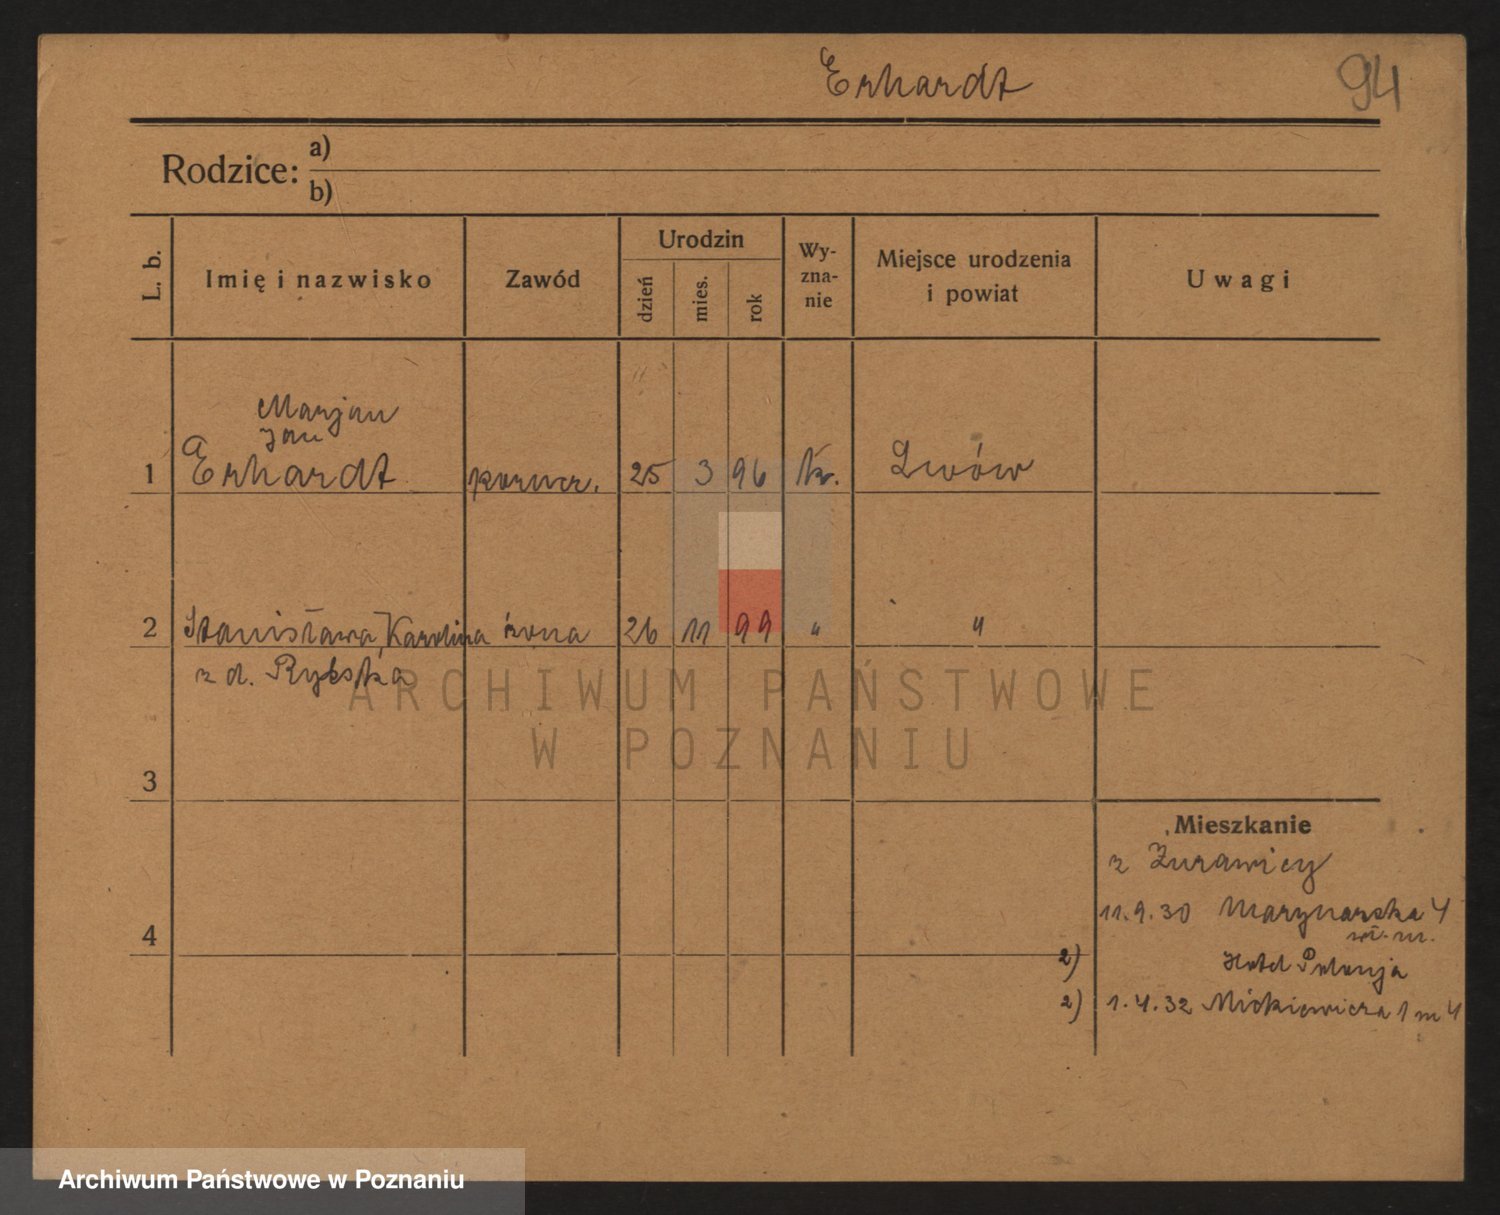 Erhardt
94
Rodzice: a)
b)
L. b.
Imię i nazwisko
Zawód
Urodzin
dzień
mies.
rok
Wy-
zna-
nie
Miejsce urodzenia
i powiat
Uwagi
Marjan
Jan
1 Erhardt 25 3 96 Lwów
2 Stanisława, Karolina żona 26 11 99 " "
z d.
ARCHIWUM PAŃSTWOWE
W POZNANIU
3
Mieszkanie
z Żurawicy
11.9.30 Marynarska 4
4
2) Hotel Polonja
2) 1.4.32 Mickiewicza 1 m 4
Archiwum Państwowe w Poznaniu